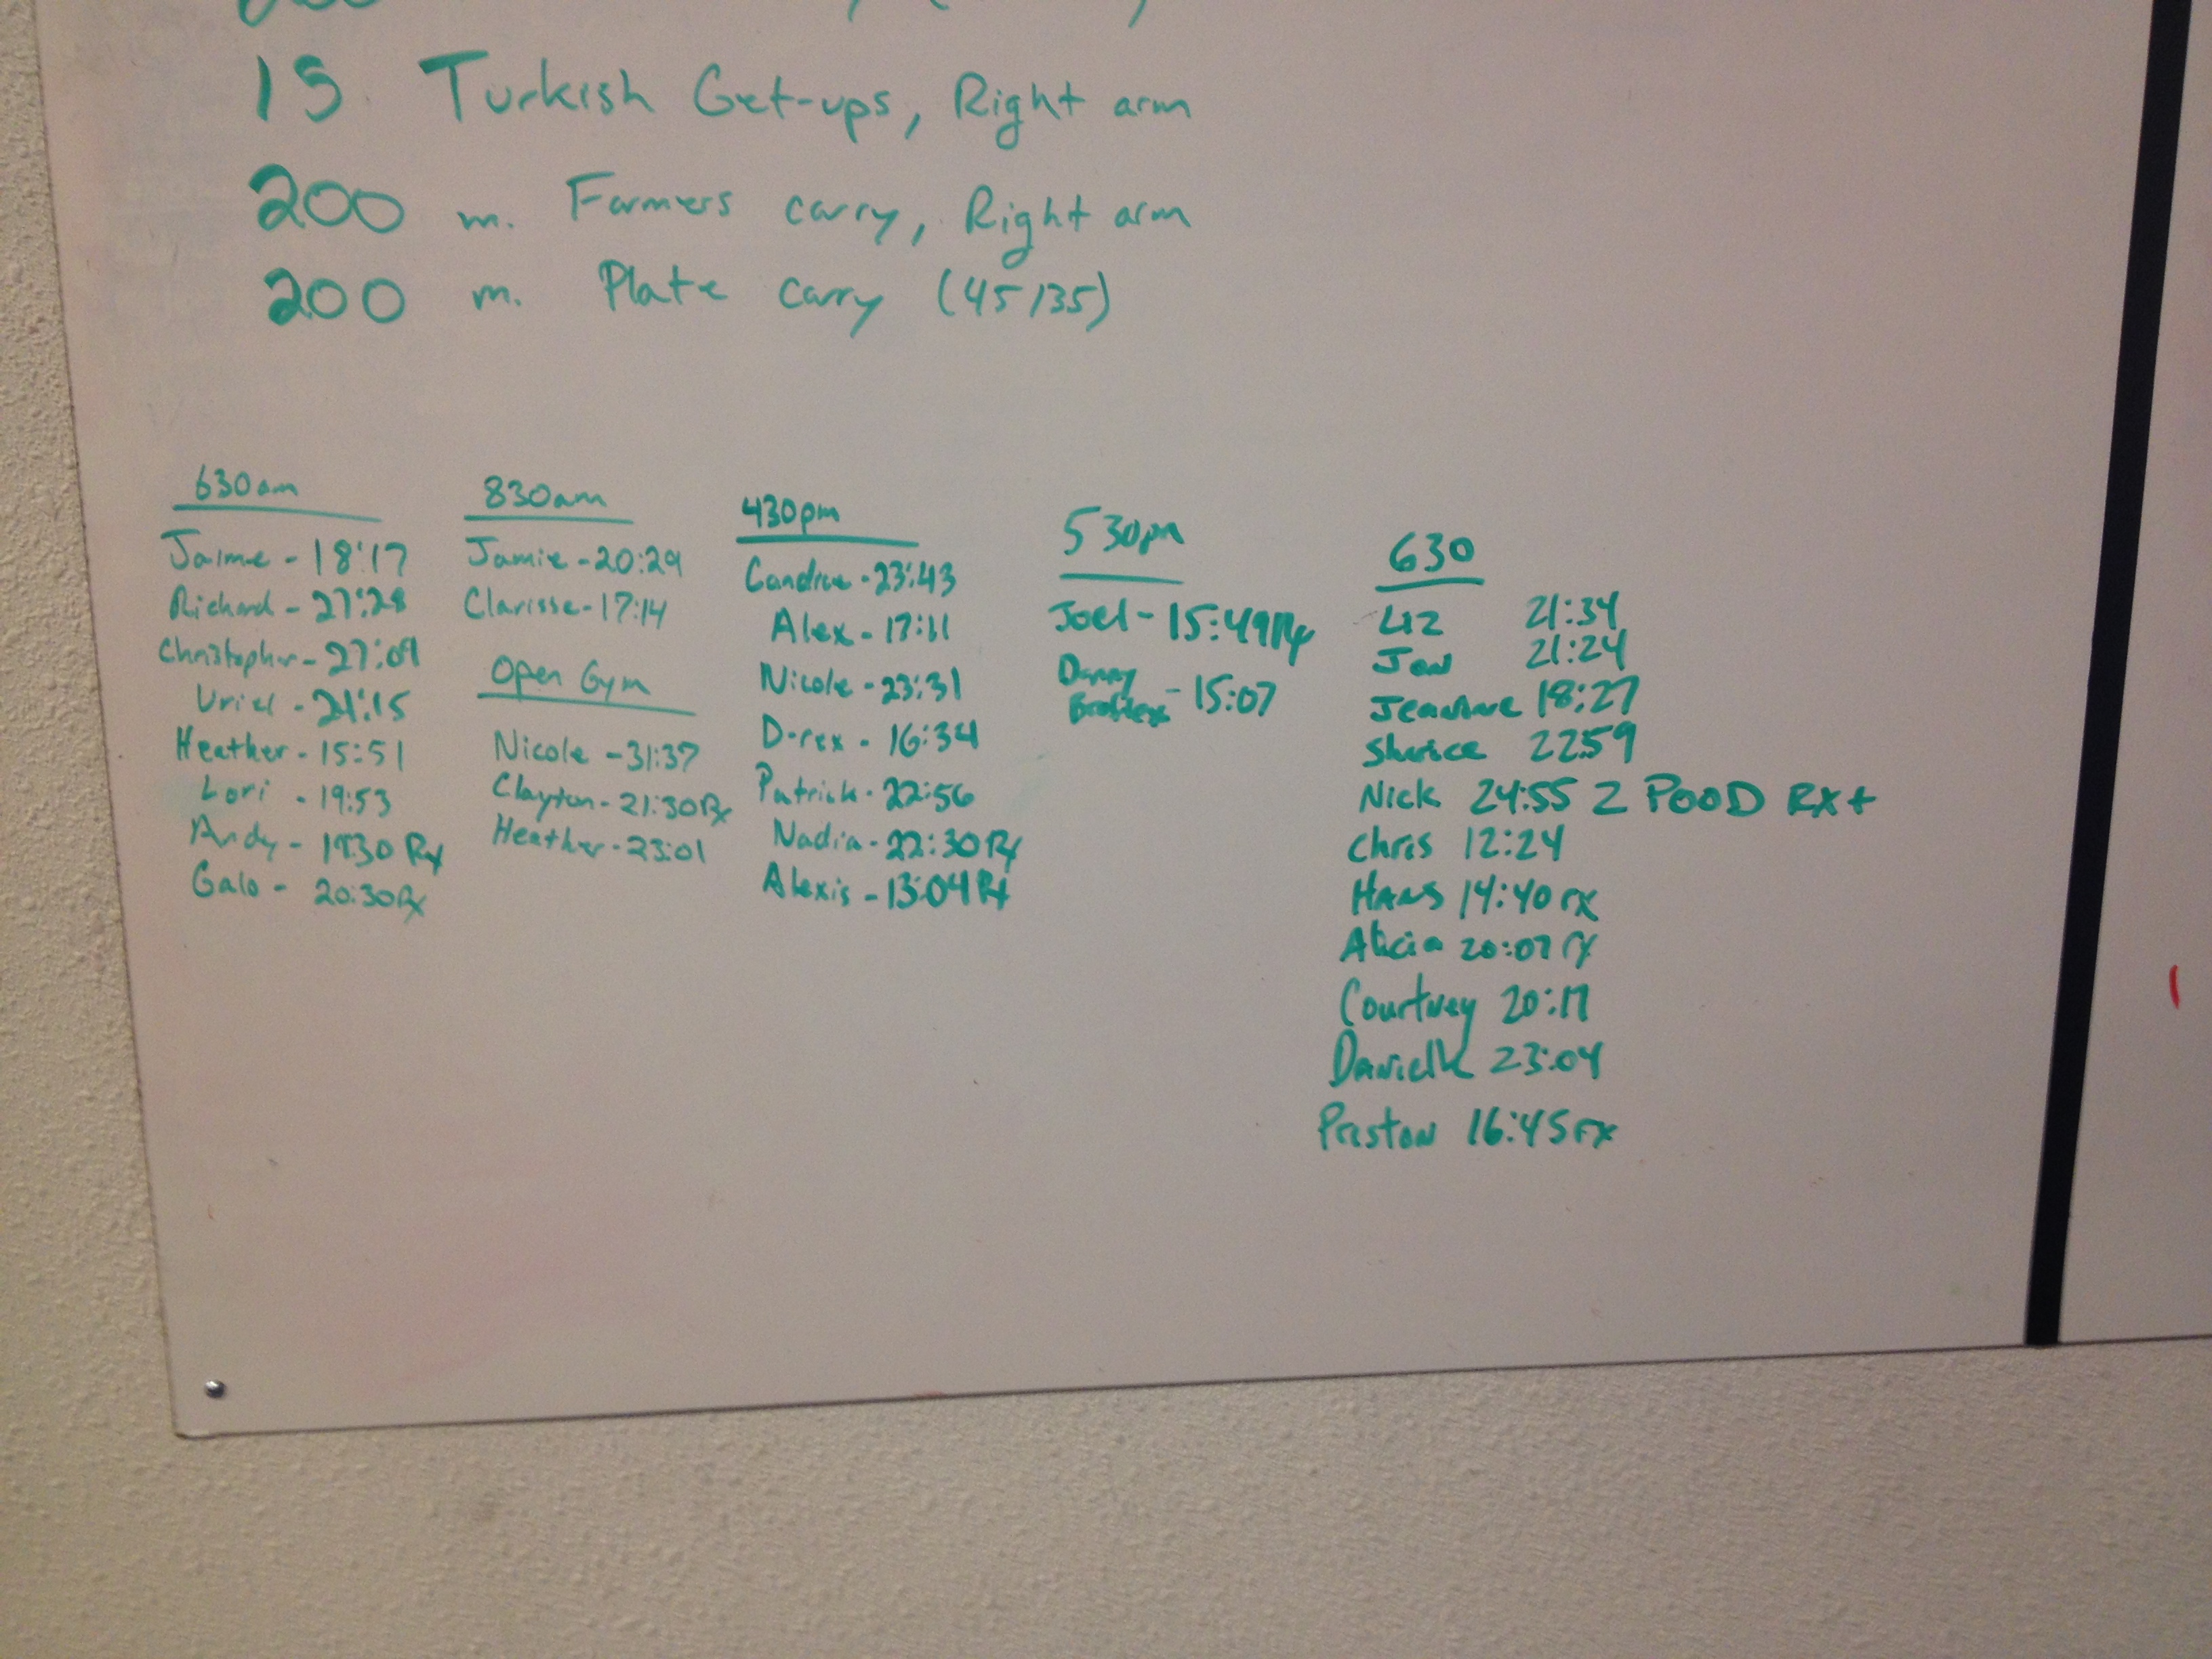 15 Turkish Get-ups, Right arm
200 m. Farmers carry, Right arm
200 m. Plate carry (45/35)
630am
Jaime - 18:17
Richard - 27:28
Christopher - 27:09
Uriel - 21:15
Heather - 15:51
Lori - 19:53
Andy - Rx
Galo - 20:30 Rx
830am
Jamie - 20:29
Clarisse - 17:14
Open Gym
Nicole - 31:37
Clayton - 21:30 Rx
Heather - 23:01
430pm
Candice - 23:43
Alex - 17:11
Nicole - 23:31
D-rex - 16:34
Patrick - 22:56
Nadia - 22:30 Rx
Alexis - 13:04 Rx
530pm
Joel - 15:49 Rx
Danny
- 15:07
630
Liz 21:34
Jon 21:24
18:27
22:59
Nick 24:55 2 POOD RX+
Chris 12:24
Hans 14:40 rx
Alicia 20:07 rx
Courtney 20:17
Danielle 23:04
Preston 16:45 rx